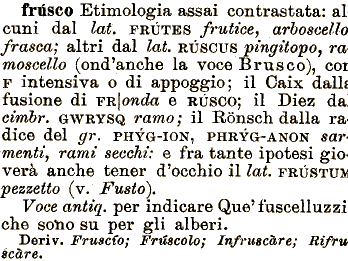 frúsco Etimologia assai contrastata: al
cuni dal lat. FRÚTES frutice, arboscello
frasca; altri dal lat. RÚSCUS pingitopo, ra
moscello (ond'anche la voce Brusco), con
F intensiva o di appoggio; il Caix dalla
fusione di FR|onda e RÚSCO; il Diez da
cimbr. GWRYSQ ramo; il Rönsch dalla ra
dice del gr. PHÝG-ION, PHRÝG-ANON sar
menti, rami secchi: e fra tante ipotesi gio
verà anche tener d'occhio il lat. FRÚSTUM
pezzetto (v. Fusto).
Voce antiq. per indicare Que' fuscelluzzi
che sono su per gli alberi.
Deriv. Fruscío; Frúscolo; Infruscàre; Rifru
scàre.